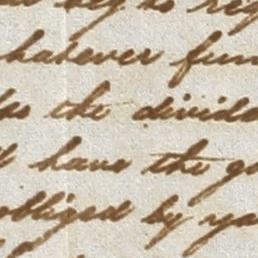 beg to re
hatever fun
the divide
have the go
obliged by yo